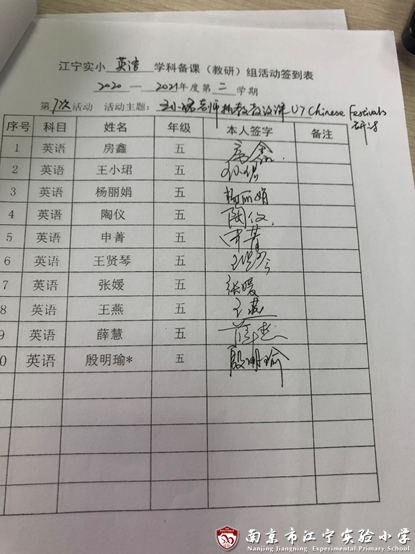 江宁实小 英语 学科备课（教研）组活动签到表
2020 — 2021年度第二学期
第7次活动 活动主题：王小珺老师执教有效课U7 Chinese Festivals
研讨
序号 科目 姓名 年级 本人签字 备注
1 英语 房鑫 五 房鑫
2 英语 王小珺 五
3 英语 杨丽娟 五 杨丽娟
4 英语 陶仪 五 陶仪
5 英语 申菁 五 申菁
6 英语 王贤琴 五
7 英语 张媛 五 张媛
8 英语 王燕 五 王燕
9 英语 薛慧 五
0 英语 殷明瑜* 五 殷明瑜
南京市江宁实验小学
Nanjing Jiangning Experimental Primary School